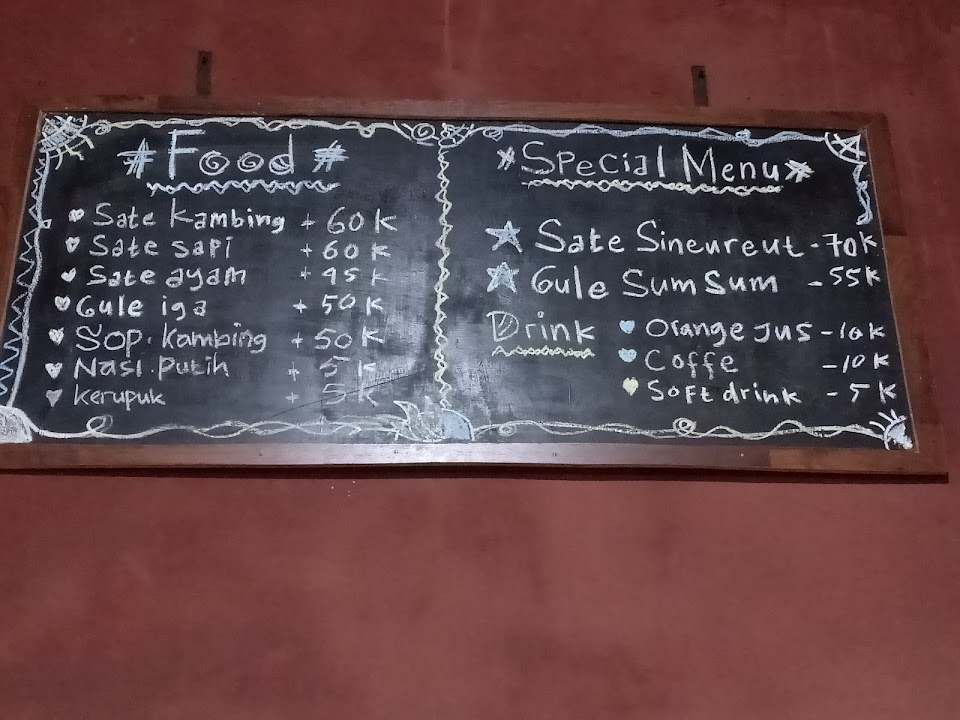 # Food #
Sate Kambing + 60K
Sate sapi + 60K
Sate ayam + 45K
Gule iga + 50K
Sop. kambing + 50K
Nasi putih + 5K
kerupuk + 5K
*Special Menu*
Sate Sineureut - 70K
Gule Sum Sum - 55K
Drink
Orange jus - 10K
Coffe - 10K
Soft drink - 5K